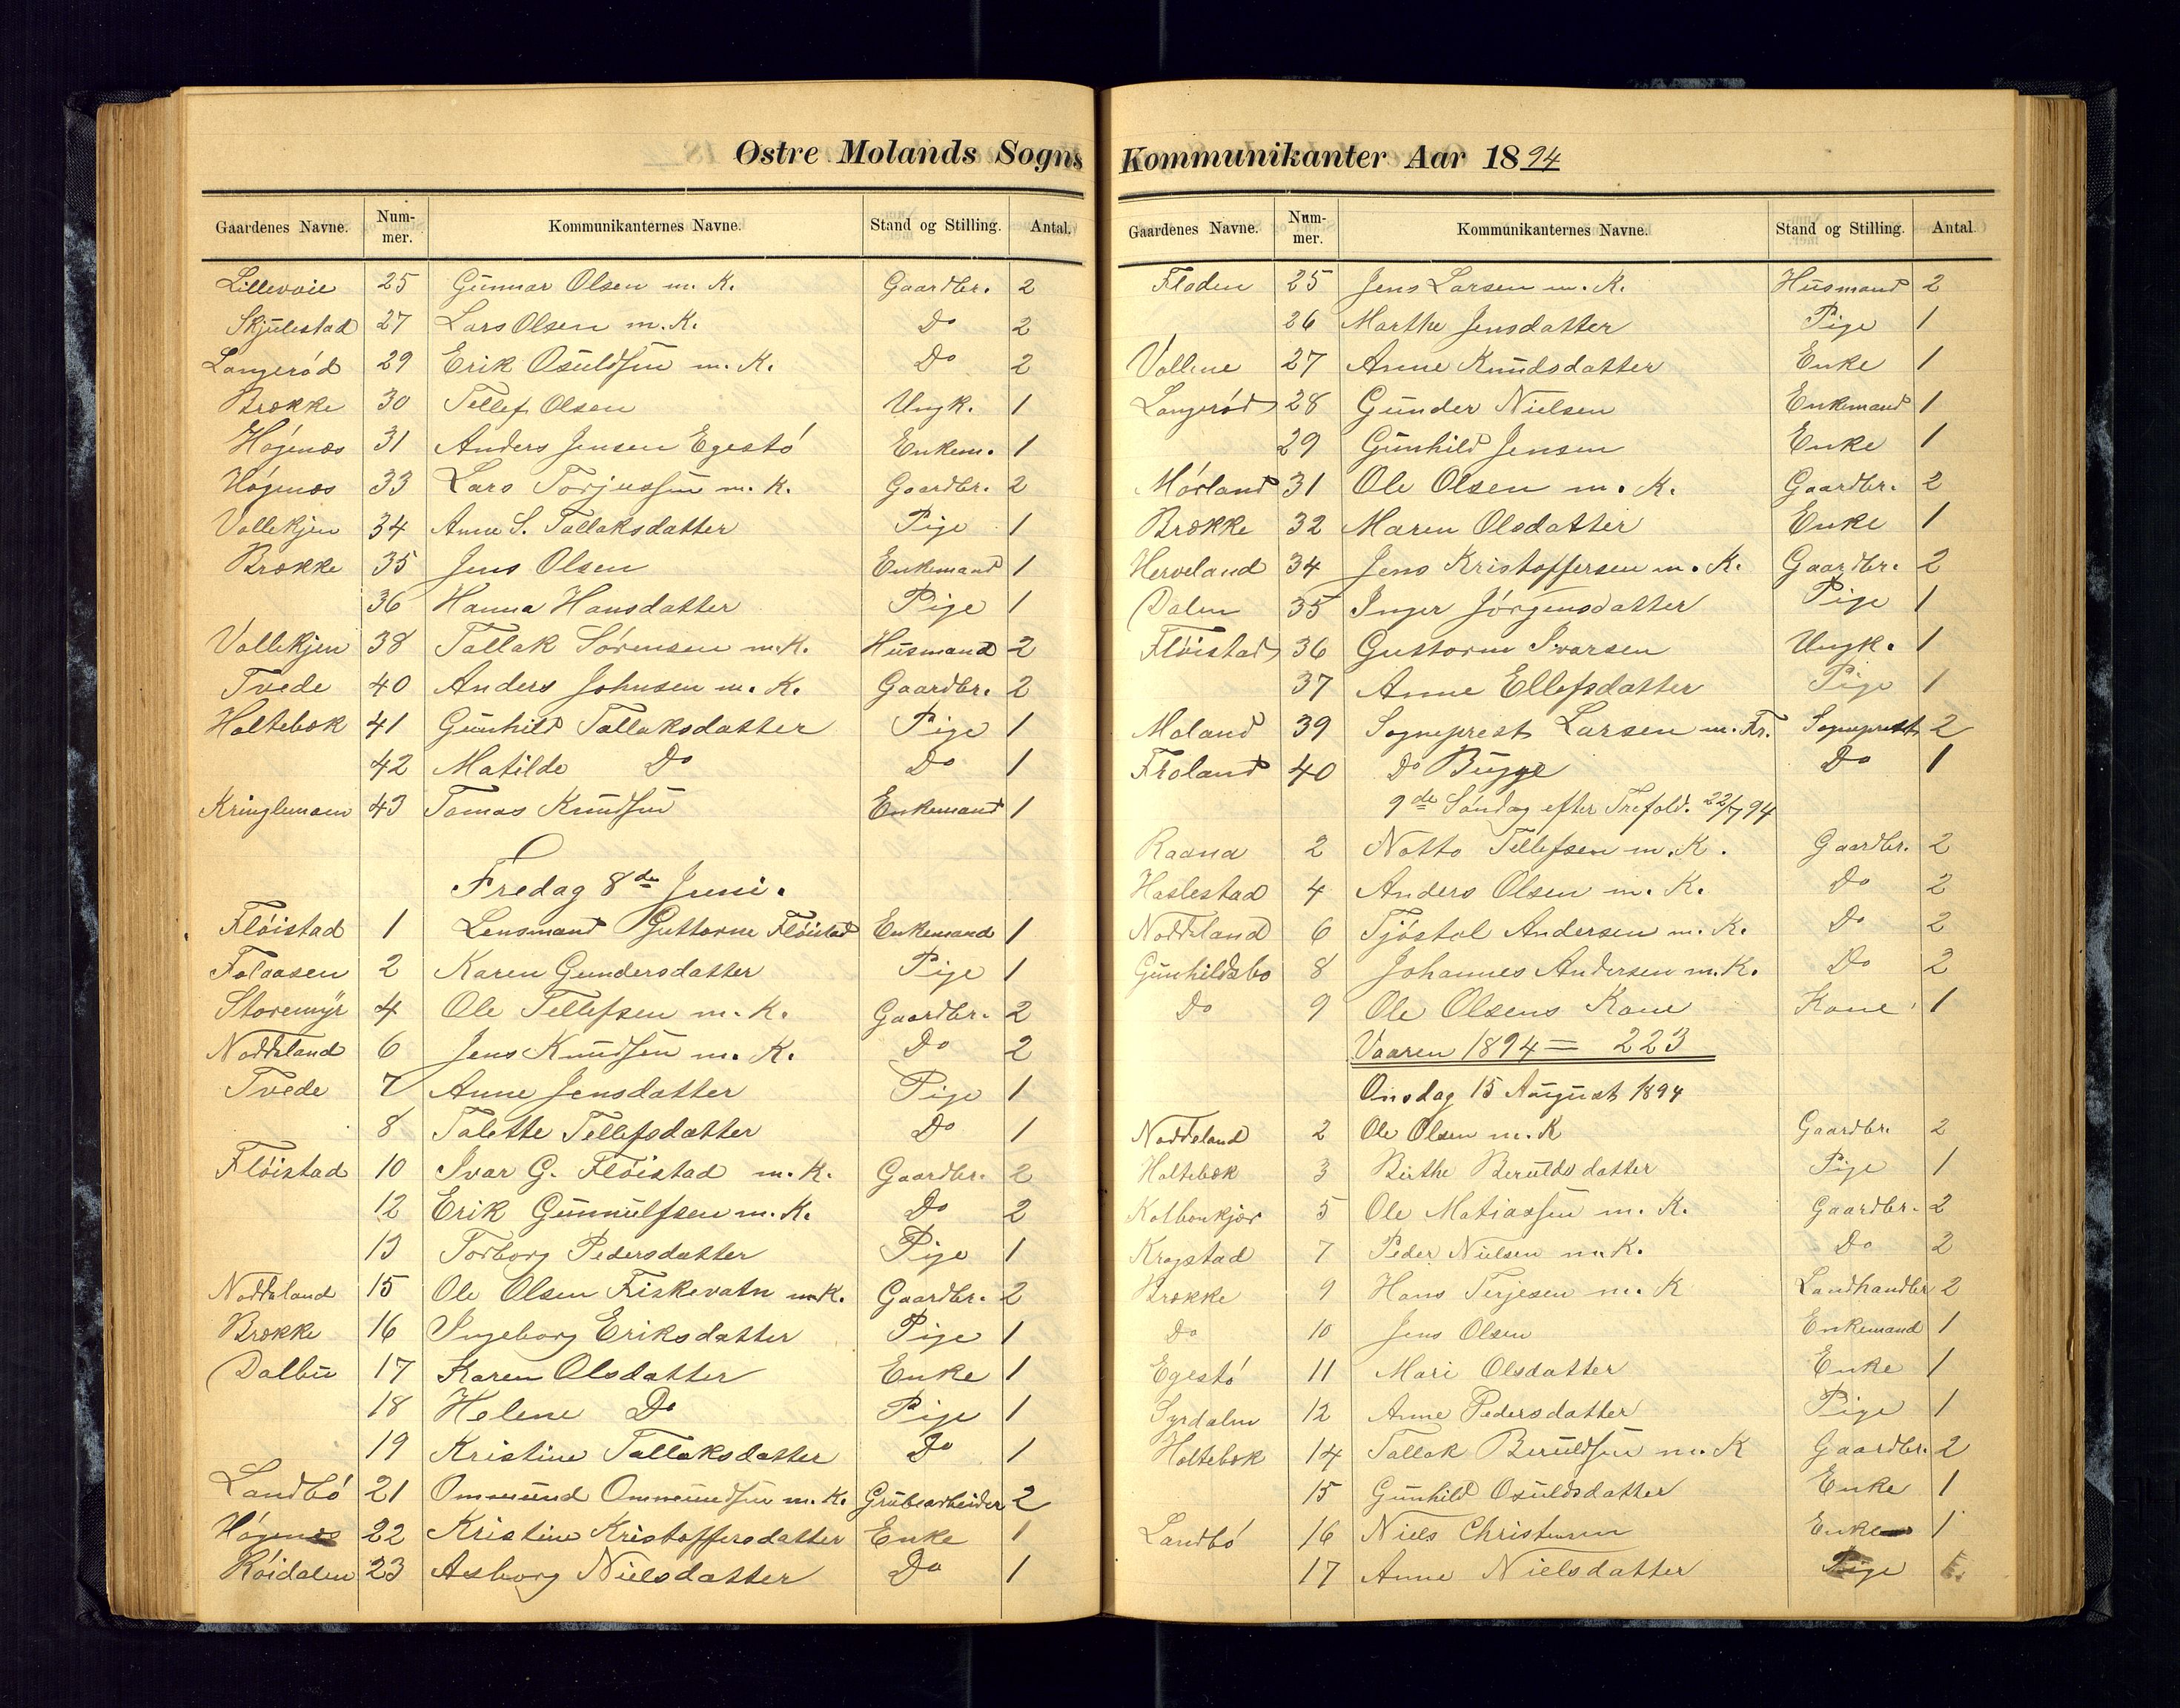 Østre Molands Sogns
Gaardenes Navne. Num-mer. Kommunikanternes Navne. Stand og Stilling. Antal.
Lillevoie 25 Gunnar Olsen m. K. Gaardbr. 2
Skjulestad 27 Lars Olsen m. K. Do 2
Langerød 29 Erik Osuldsen m. K. Do 2
Brække 30 Tellef Olsen Ungk. 1
Høgenæs 31 Anders Jensen Egestø Enkem. 1
Høgenæs 33 Lars Torjussen m. K. Gaardbr. 2
Vallekjen 34 Anne S. Tallaksdatter Pige 1
Brække 35 Jens Olsen Enkemand 1
36 Hanna Hansdatter Pige 1
Vallekjen 38 Tallak Sørensen m.K. Husmand 2
Tvede 40 Anders Johnsen m. K. Gaardbr. 2
Holtebæk 41 Gunhild Tallaksdatter Pige 1
42 Matilde Do Do 1
Kringlemoen 43 Tomas Knudsen Enkemand 1
Fredag 8de Juni.
Fløistad 1 Lensmand Guttorm Fløistad Enkemand 1
Folaasen 2 Karen Gundersdatter Pige 1
Storemyr 4 Ole Tellefsen m. K. Gaardbr. 2
Noddeland 6 Jens Knudsen m. K. Do 2
Tvede 7 Anne Jensdatter Pige 1
8 Talette Tellefsdatter Do 1
Fløistad 10 Ivar G. Fløistad m. K. Gaardbr. 2
12 Erik Gunnulfsen m. K. Do 2
13 Torborg Pedersdatter Pige 1
Noddeland 15 Ole Olsen Fiskevatn m.K. Gaardbr. 2
Brække 16 Ingeborg Eriksdatter Pige 1
Dalbu 17 Karen Olsdatter Enke 1
18 Helene Do Pige 1
19 Kristine Tallaksdatter Do 1
Landbø 21 Ommund Ommundsen m. K. Grubearbeider 2
Høgenæs 22 Kristine Kristoffersdatter Enke 1
Røidalen 23 Asborg Nielsdatter Do 1
Kommunikanter Aar 1894
Gaardenes Navne. Num-mer. Kommunikanternes Navne. Stand og Stilling. Antal
Floden 25 Jens Larsen m. K. Husmand 2
26 Marthe Jensdatter Pige 1
Vollene 27 Anne Knudsdatter Enke 1
Langerød 28 Gunder Nielsen Enkemand 1
29 Gunhild Jensen Enke 1
Mørland 31 Ole Olsen m. K. Gaardbr. 2
Brække 32 Maren Olsdatter Enke 1
Herveland 34 Jens Kristoffersen m. K. Gaardbr. 2
Dalen 35 Inger Jørgensdatter Pige 1
Fløistad 36 Guttorm Ivarsen Ungk. 1
37 Anne Ellefsdatter Pige 1
Moland 39 Sogneprest Larsen m. Fr. Sogneprest 2
Froland 40 Do Bugge Do 1
9de Søndag efter Trefold. 22/7 94
Raana 2 Notto Tellefsen m. K. Gaardbr. 2
Haslestad 4 Anders Olsen m. K. Do 2
Noddeland 6 Tjøstol Andersen m. K. Do 2
Gunhildsbo 8 Johannes Andersen m.K. Do 2
Do 9 Ole Olsens Kone Kone 1
Vaaren 1894 = 223
Onsdag 15 August 1894
Noddeland 2 Ole Olsen m. K Gaardbr. 2
Holtebæk 3 Birthe Beruldsdatter Pige 1
Kolbonkjær 5 Ole Matiassen m. K. Gaardbr. 2
Krogstad 7 Peder Nielsen m. K. Do 2
Brække 9 Hans Terjesen m. K Landhandler 2
Do 10 Jens Olsen Enkemand 1
Egestø 11 Mari Olsdatter Enke 1
Syrdalen 12 Anne Pedersdatter Pige 1
Holtebæk 14 Tallak Beruldsen m. K Gaardbr. 2
15 Gunhild Osuldsdatter Enke 1
Landbø 16 Niels Christensen Enkem 1
17 Anne Nielsdatter Pige